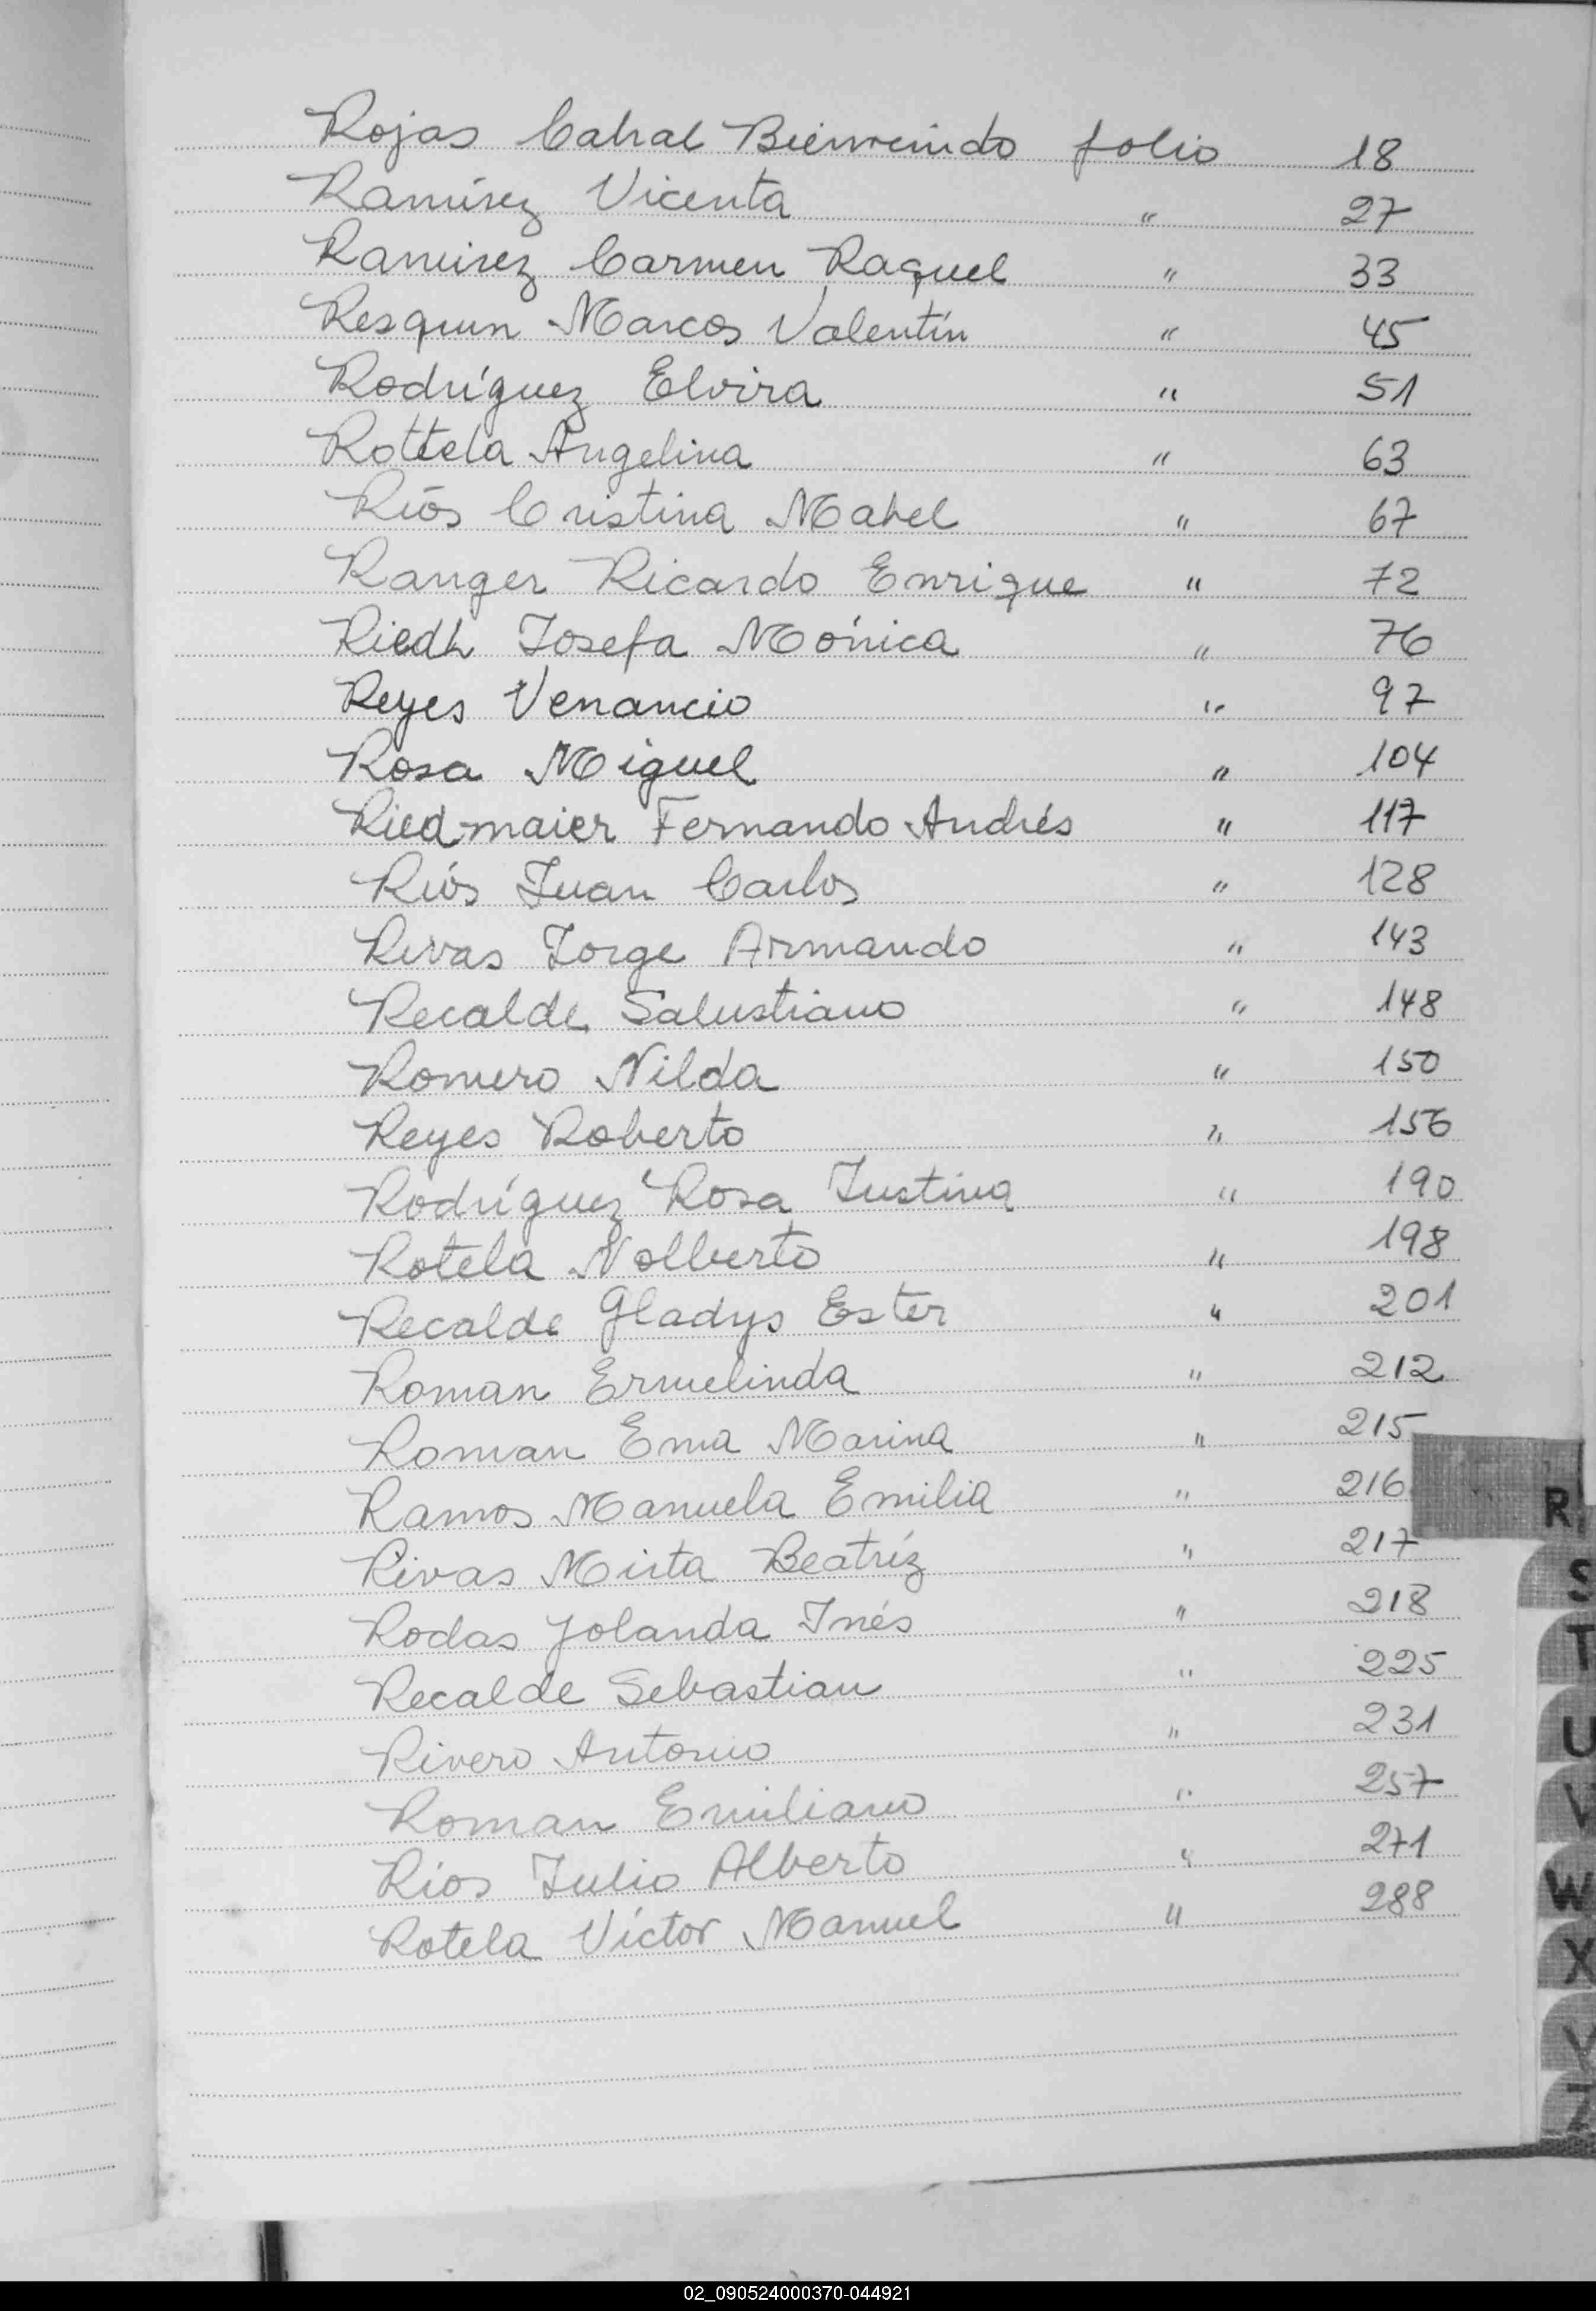 Rojas Cabral Bienvenido folio 18
Ramírez Vicenta " 27
Ramirez Carmen Raquel " 33
Resquin Marcos Valentín " 45
Rodríguez Elvira " 51
Rottela Angelina " 63
Ríos Cristina Mabel " 67
Ranger Ricardo Enrique " 72
Riedl Josefa Mónica " 76
Reyes Venancio " 97
Rosa Miguel " 104
Riedmaier Fernando Andrés " 117
Ríos Juan Carlos " 128
Rivas Jorge Armando " 143
Recalde Salustiano " 148
Romero Nilda " 150
Reyes Roberto " 156
Rodríguez Rosa Justina " 190
Rotela Nolberto " 198
Recalde Gladys Ester " 201
Roman Ermelinda " 212
Roman Ema Marina " 215
Ramos Manuela Emilia " 216
Rivas Mirta Beatríz " 217
Rodas Yolanda Inés " 218
Recalde Sebastian " 225
Rivero Antonio " 231
Roman Emiliano " 257
Ríos Julio Alberto " 271
Rotela Víctor Manuel " 288
R
S
T
U
V
W
X
Y
Z
02_090524000370-044921